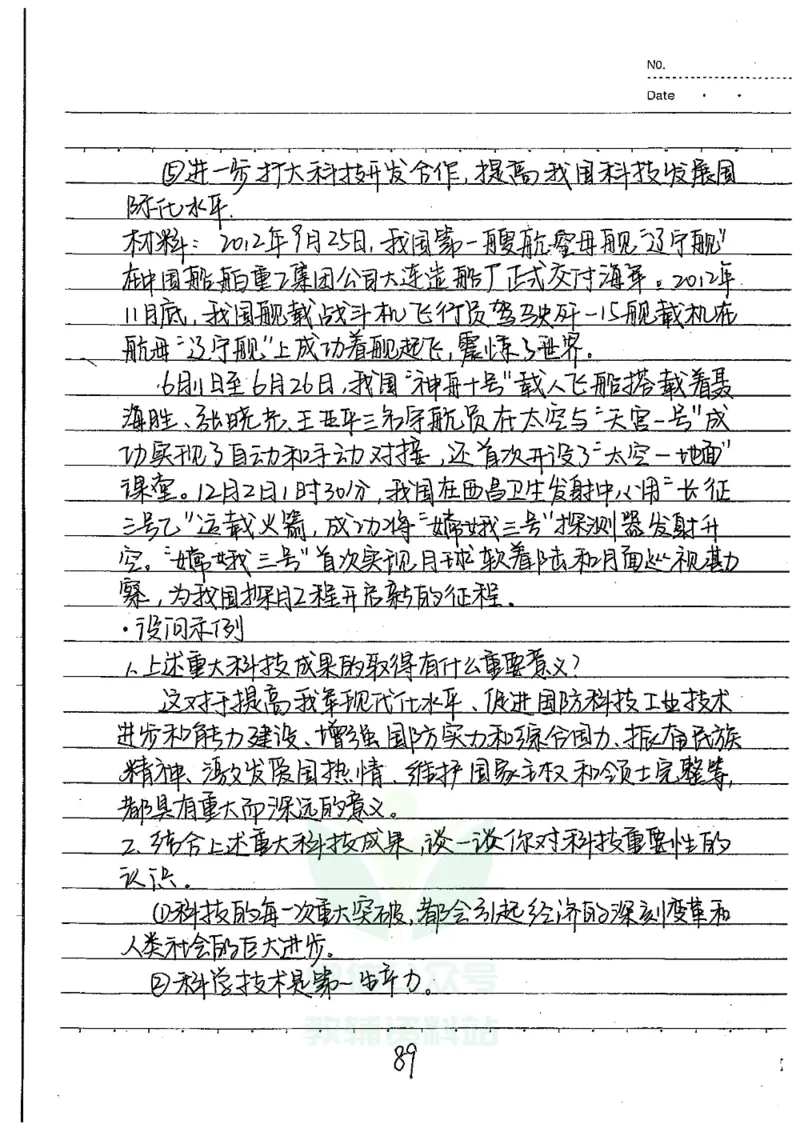 No.
Date
⑤进一步扩大科技研发合作，提高我国科技发展国
际化水平.
材料：2012年9月25日，我国第一艘航空母舰“辽宁舰”
在中国船舶重工集团公司大连造船厂正式交付海军。2012年
11月底，我国舰载战斗机飞行员驾驶歼-15舰载机在
航母“辽宁舰”上成功着舰起飞，震惊了世界。
6月11日至6月26日，我国“神舟十号”载人飞船搭载着聂
海胜、张晓光、王亚平三名宇航员在太空与“天宫一号”成
功实现了自动和手动对接，还首次开设了“太空一地面”
课堂。12月2日1时30分，我国在西昌卫生发射中心用“长征
三号乙”运载火箭，成功将“嫦娥三号”探测器发射升
空。“嫦娥三号”首次实现月球软着陆和月面巡视勘
察，为我国探月工程开启新的征程。
·设问示例
1.上述重大科技成果的取得有什么重要意义？
这对于提高我军现代化水平、促进国防科技工业技术
进步和能力建设、增强国防实力和综合国力、振奋民族
精神、激发爱国热情、维护国家主权和领土完整等，
都具有重大而深远的意义。
2.结合上述重大科技成果，谈一谈你对科技重要性的
认识。
①科技的每一次重大突破，都会引起经济的深刻变革和
人类社会的巨大进步。
②科学技术是第一生产力。
教辅资料站
89